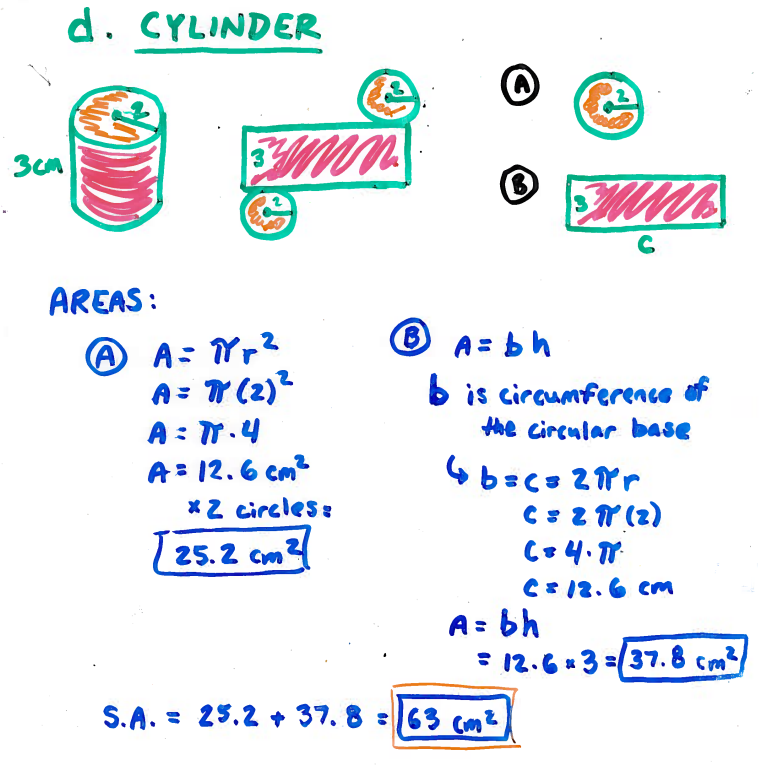 d. CYLINDER
2
3cm
2
3
2
A
2
B
3
C
AREAS:
A A = πr²
A = π(2)²
A = π·4
A = 12.6 cm²
×2 circles=
25.2 cm²
B A = bh
b is circumference of
the circular base
↳ b = C = 2πr
C = 2π(2)
C = 4·π
C = 12.6 cm
A = bh
= 12.6 × 3 = 37.8 cm²
S.A. = 25.2 + 37.8 = 63 cm²